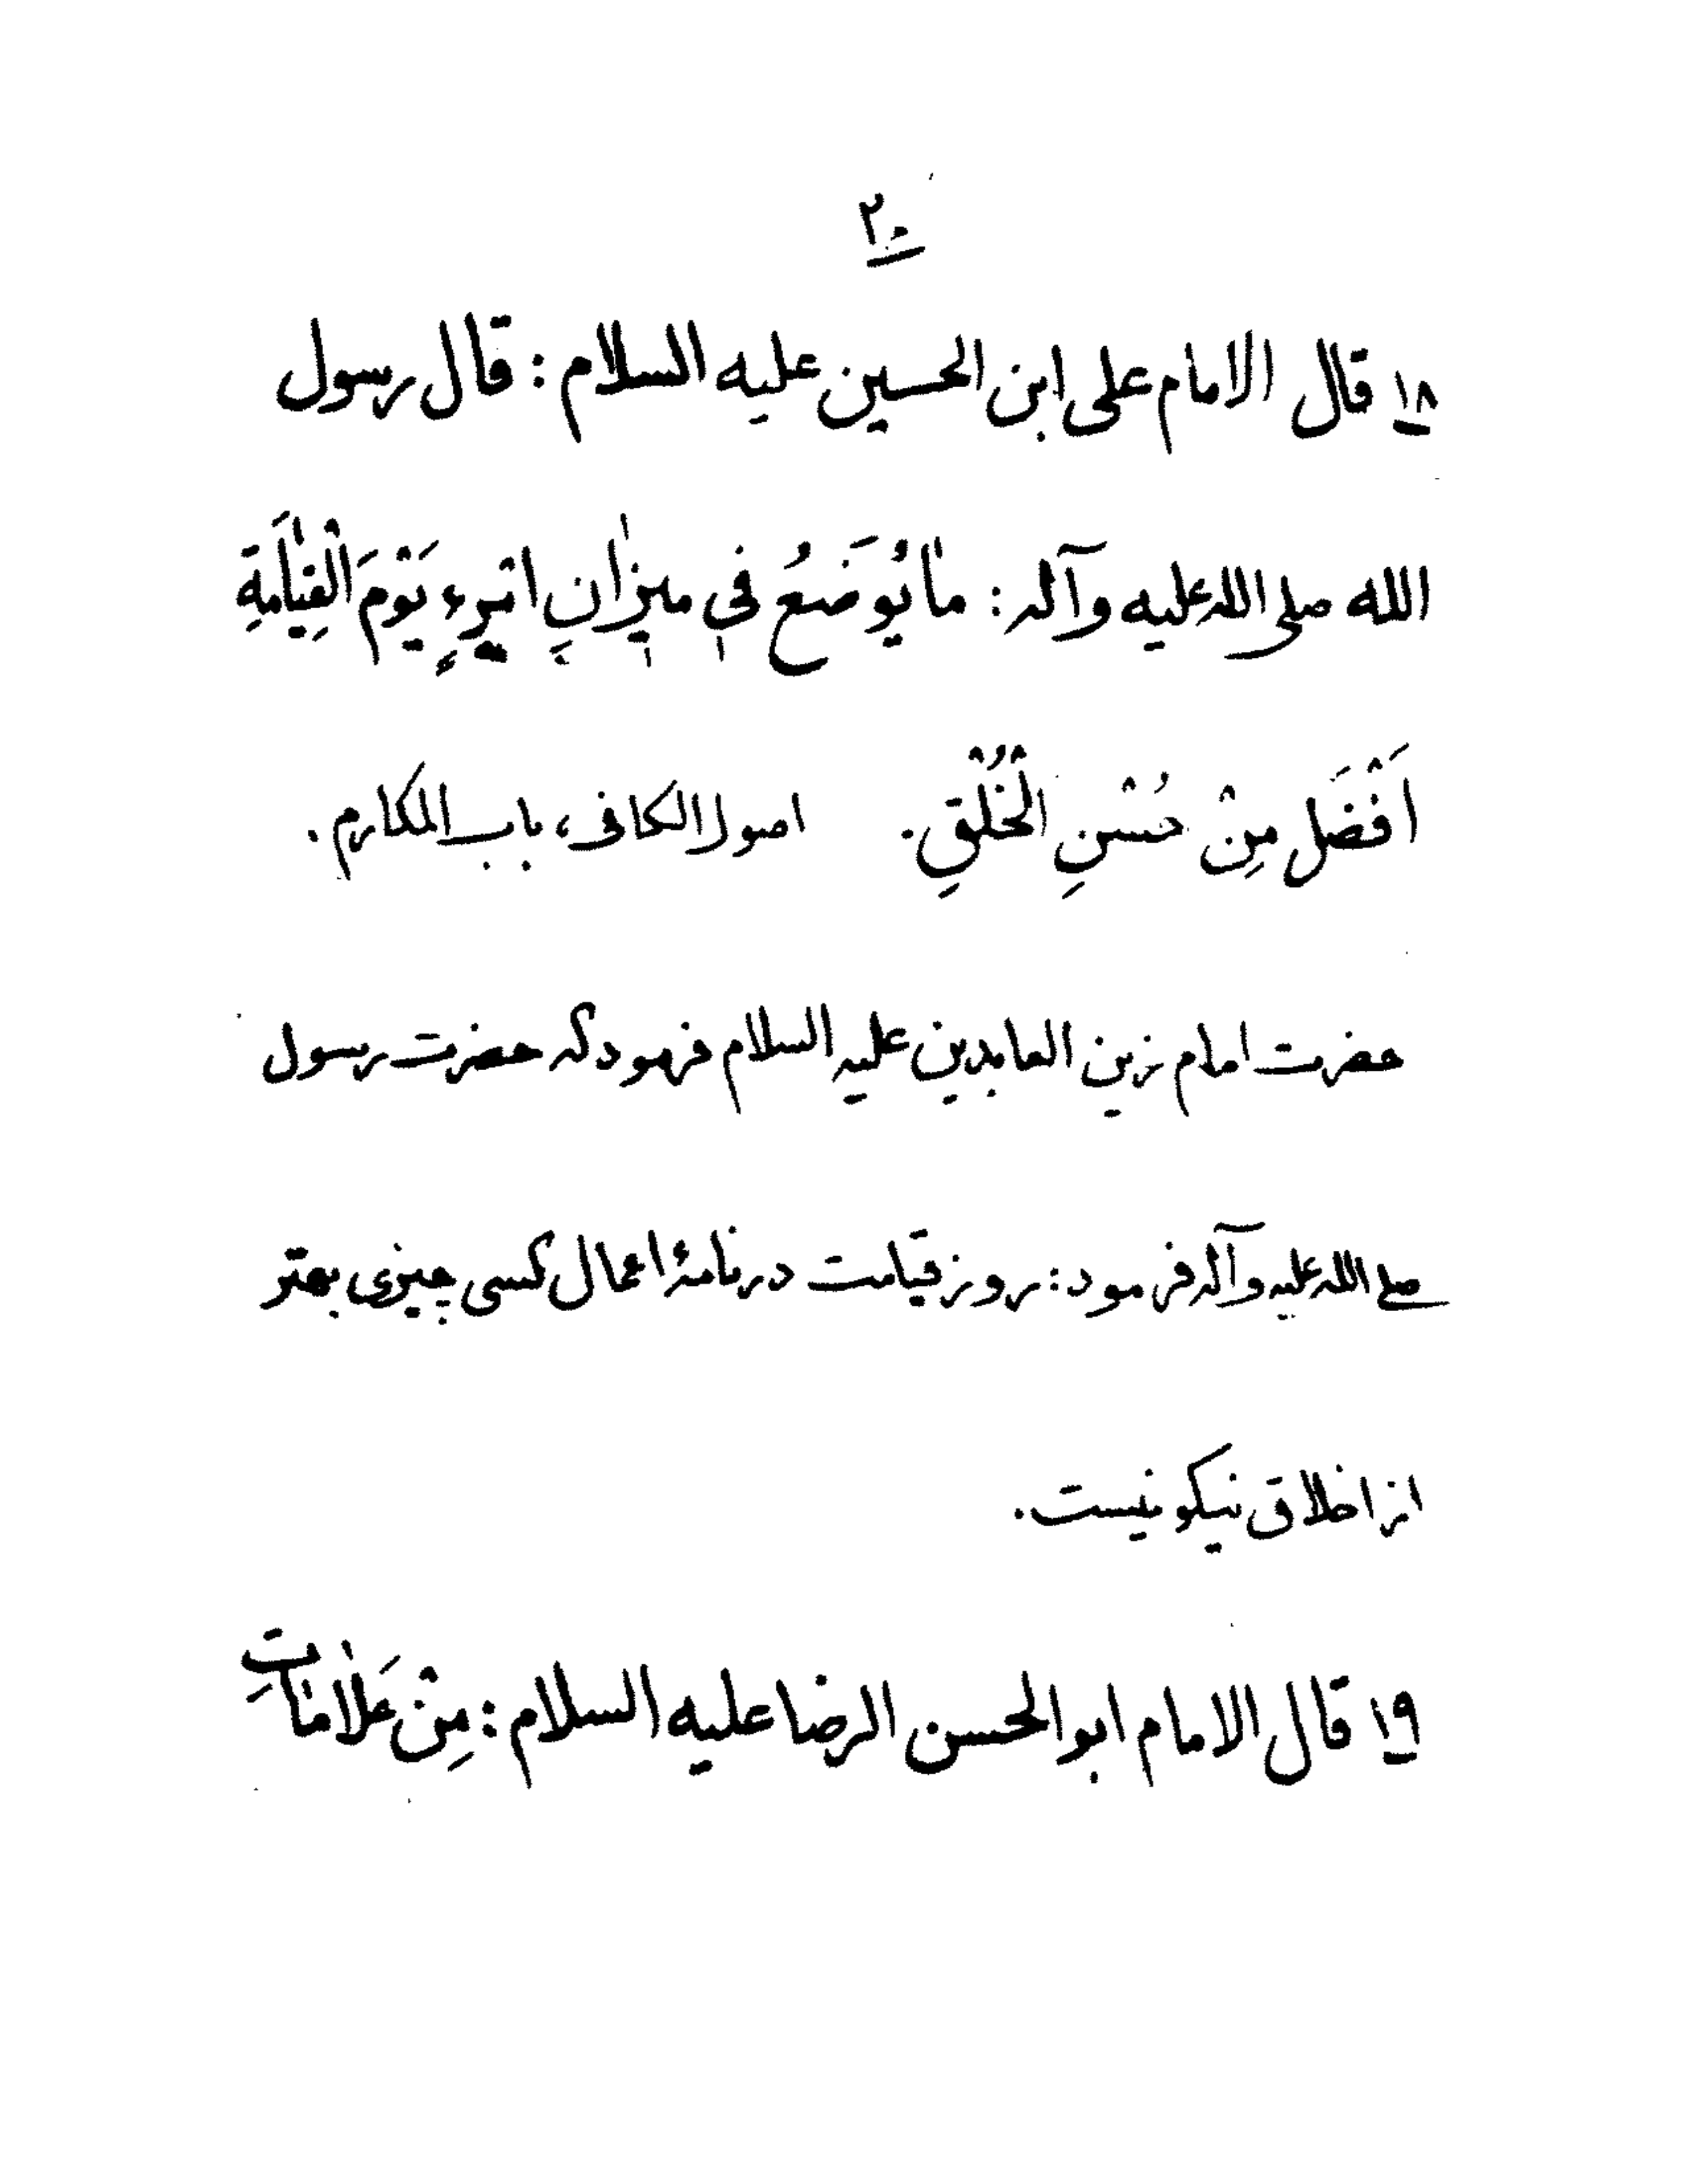 ۲۰
۱۸ قال الامام علی ابن الحسین علیه السلام : قال رسول
الله صلی الله علیه وآله : مٰا يُوضَعُ فِي مِيزٰانِ امْرِءٍ يَوْمَ الْقِيٰامَةِ
اَفْضَل مِنْ حُسْنِ الْخُلْقِ. اصول الکافی، باب المکارم.
حضرت امام زین العابدین علیه السلام فرمود که حضرت رسول
صلی الله علیه وآله فرمود : روز قیامت در نامهٔ اعمال کسی چیزی بهتر
از اخلاق نیکو نیست.
۱۹ قال الامام ابوالحسن الرضا علیه السلام : مِنْ عَلٰامٰاتِ